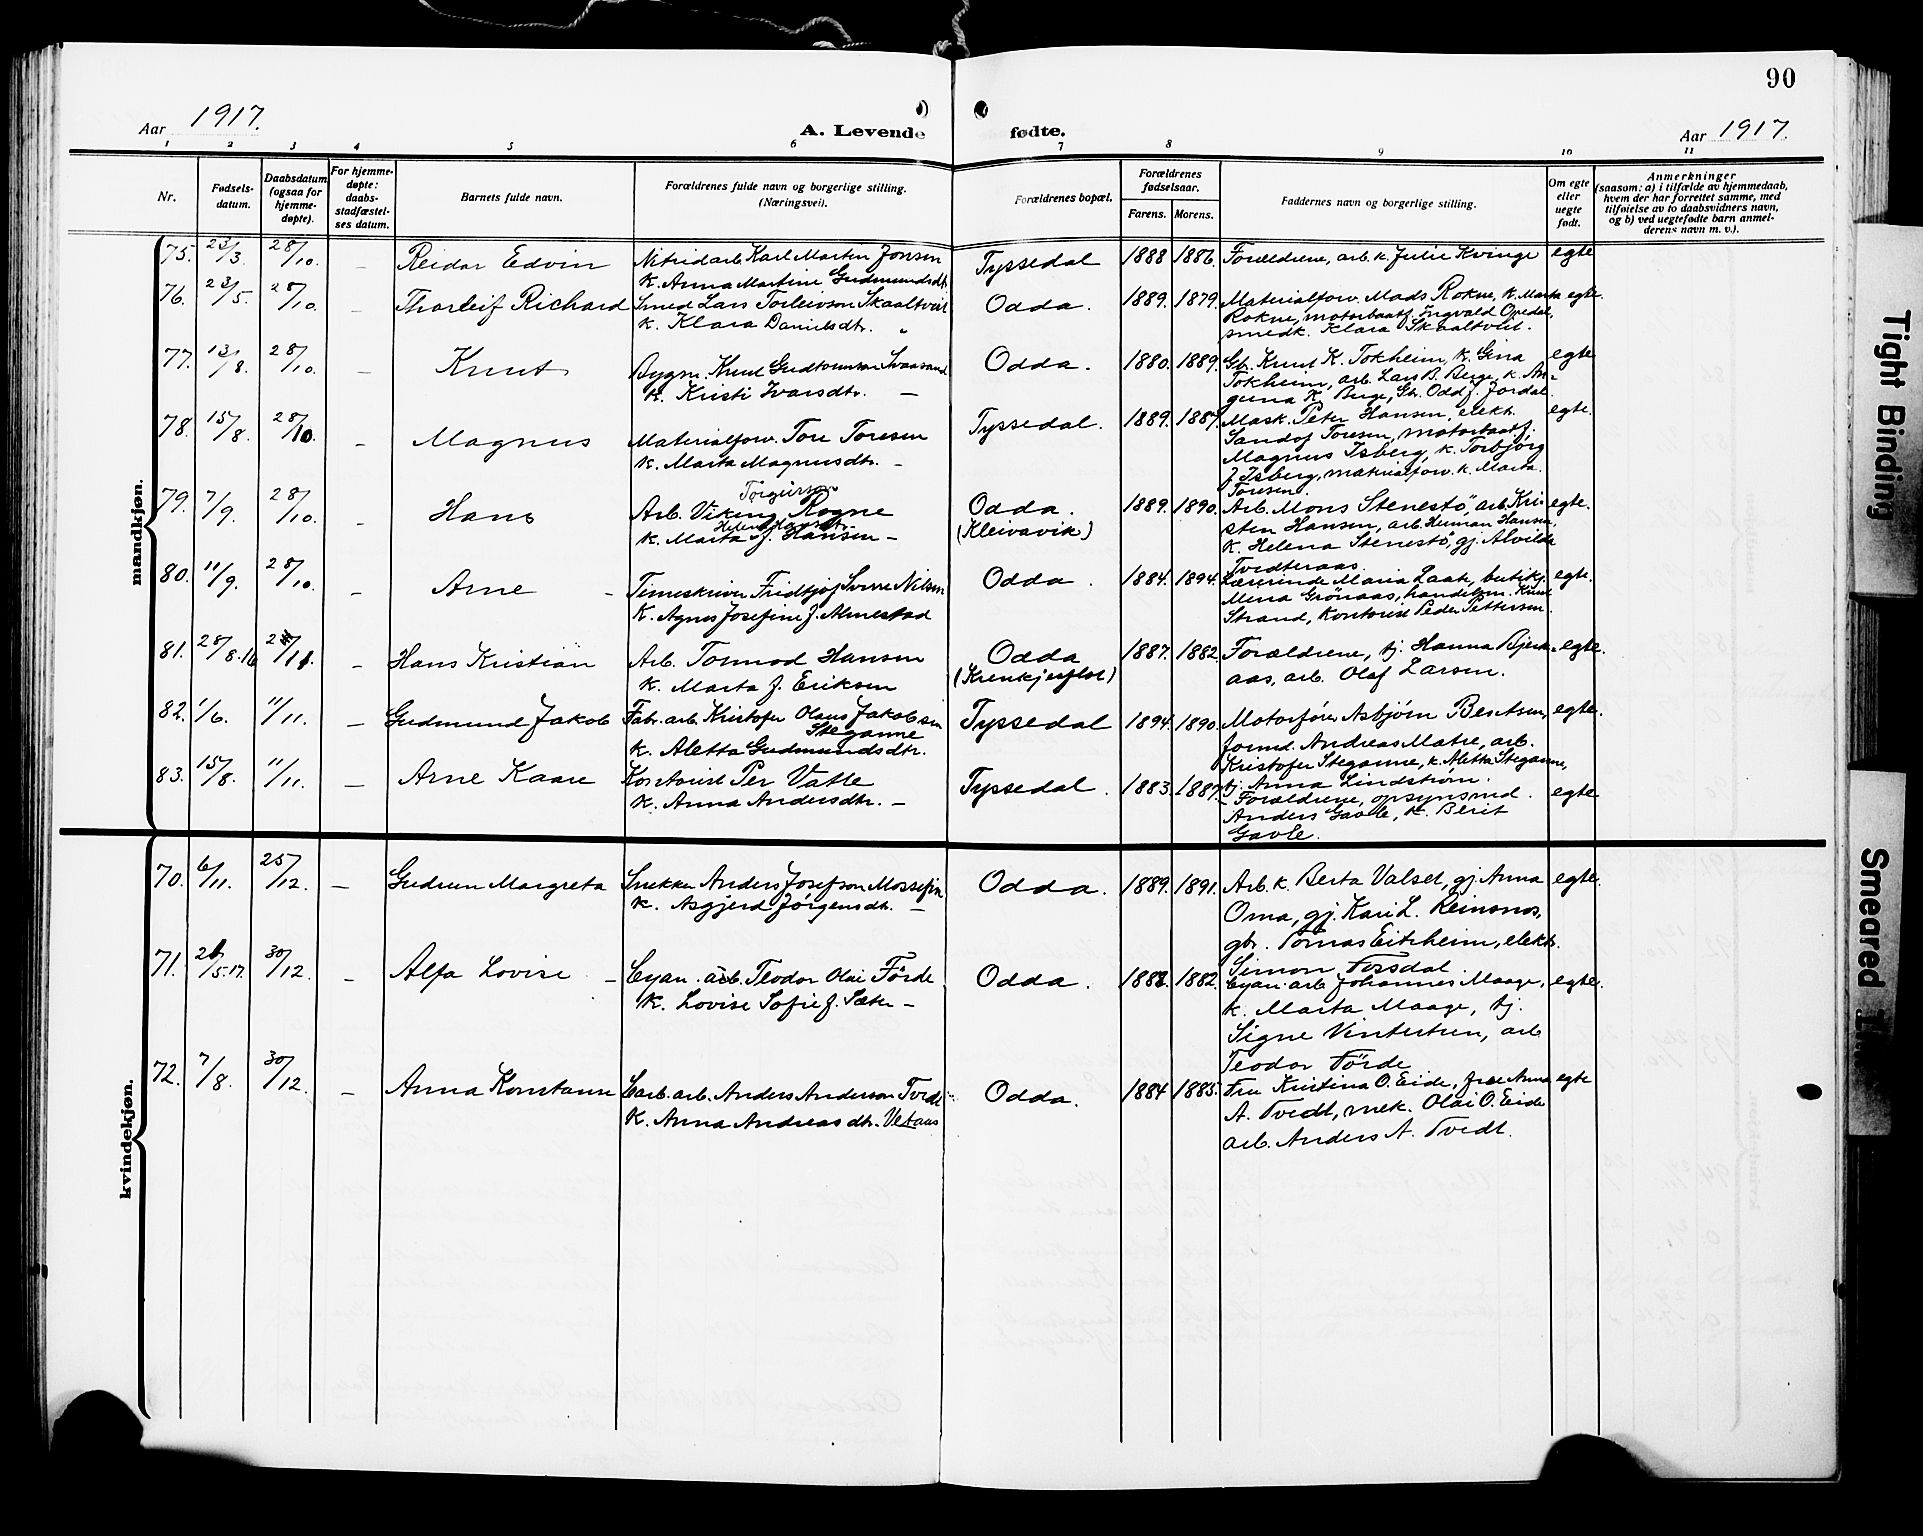 90
Aar 1917.
A. Levende fødte.
Aar 1917.
1 2 3 4 5 6 7 8 9 10 11
Nr.
Fødsels-
datum.
Daabsdatum
(ogsaa for
hjemme-
døpte).
For hjemme-
døpte:
daabs-
stadfæstel-
ses datum.
Barnets fulde navn.
Forældrenes fulde navn og borgerlige stilling.
(Næringsvei).
Forældrenes bopæl.
Forældrenes
fødselsaar.
Farens. Morens.
Faddernes navn og borgerlige stilling.
Om egte
eller
uegte
født.
Anmerkninger
(saasom: a) i tilfælde av hjemmedaab,
hvem der har forrettet samme, med
tilføielse av to daabsvidners navn,
og b) ved uegtefødte barn anmel-
derens navn m. v.).
mandkjøn.
75. 23/3. 28/10. – Reidar Edvin
Nitridarb. Karl Martin Jonsen
k. Anna Martine Gudmundsdt.
Tyssedal 1888 1886.
Forældrene, arb. k. Julie Kvinge
egte
76. 23/5. 28/10. – Thorleif Richard
Smed Lars Torleivson Skaaltveit
k. Klara Danielsdtr. "
Odda. 1889. 1879.
Materialforv. Mads Rokne, k. Marta
Rokne, motorbaatf. Ingvald Opedal,
smedk. Klara Skaaltveit.
egte.
77. 13/8. 28/10. – Knut
Bygm. Knut Gudtormson Svaasand
k. Kristi Ivarsdtr. –
Odda. 1880. 1889.
Gb. Knut K. Tokheim, k. Gina
Tokheim, arb. Lars B. Berge, k. An-
guna K. Berge, Gb. Odd J. Jordal.
egte
78. 15/8. 28/10. – Magnus
Materialforv. Tore Toresen
k. Marta Magnusdtr. –
Tyssedal. 1889. 1887.
Mask. Peter Hansen, elekt.
Sandof Toresen, motorbaatf.
Magnus Isberg, k. Torbjørg
J. Isberg, materialforv. k. Marta
Toresen.
egte.
79. 7/9. 28/10. – Hans
Torgeirson
Arb. Viking Rogne
Helene Hansdtr.
k. Marta f. Hansen –
Odda.
(Kleivavik)
1889. 1890.
Arb. Mons Stenestö, arb. Kri-
sten Hansen, arb. Herman Hansen,
k. Helena Stenestö, gj. Alvilda
Tvedteraas.
egte.
80. 11/9. 28/10. – Arne –
Timeskriver Fridtjof Sverre Nilsen
k. Agnes Josefine f. Almestad
Odda. 1884. 1894.
Lærerinde Maria Laate, butikj.
Mina Grönaas, handelsm. Knut
Strand, kontorist Peder Pettersen.
egte.
81. 28/8.16 /11. – Hans Kristian
Arb. Tormod Hansen
k. Marta f. Eriksen
Odda
1887. 1882.
Forældrene, tj. Hanna Bjerk-
aas, arb. Olaf Larsen.
egte.
82. 1/6. 11/11. – Gudmund Jakob
Fabr. arb. Kristofer Olaus Jakobsen
Steganne
k. Aletta Gudmundsdtr.
Tyssedal 1894. 1890.
Motorfører Asbjørn Bentsen,
formd. Andreas Matre, arb.
Kristofer Steganne, k. Aletta Steganne,
tj. Anna Lindstrøm.
egte.
83. 15/8. 11/11. – Arne Kaare
Kontorist Per Vatle
k. Anna Andersdtr. –
Tyssedal. 1883. 1887.
– Forældrene, opsynsmd.
Anders Gavle, k. Berit
Gavle.
egte
kvindekjøn.
70. 6/11. 25/12. – Gudrun Margreta
Snekker Anders Josefson Mossefin
k. Asgjerd Jørgensdtr. –
Odda. 1889. 1891.
Arb. k. Berta Valset, gj. Anna
Oma, gj. Kari L. Reinsnos,
gbr. Tomas Eitrheim, elekt.
Simon Fossdal.
egte.
71. /5.17. 30/12. – Alfa Lovise –
Cyan. arb. Teodor Olai Förde
k. Lovise Sofie f. Sæter –
Odda. 1882.
Cyan. arb. Johannes Maage,
k. Marta Maage, tj.
Signe Vintertun, arb.
Teodor Förde
egte.
72. 7/8. 30/12. – Anna Konstanse
Carb. arb. Anders Anderson Tvedt
k. Anna Andreasdtr. Vetaas
Odda. 1884 1885.
Fru Kristina O. Eide, frue Anna
A. Tvedt, mek. Olai O. Eide
arb. Anders A. Tvedt.
egte
Tight Binding
Smeared